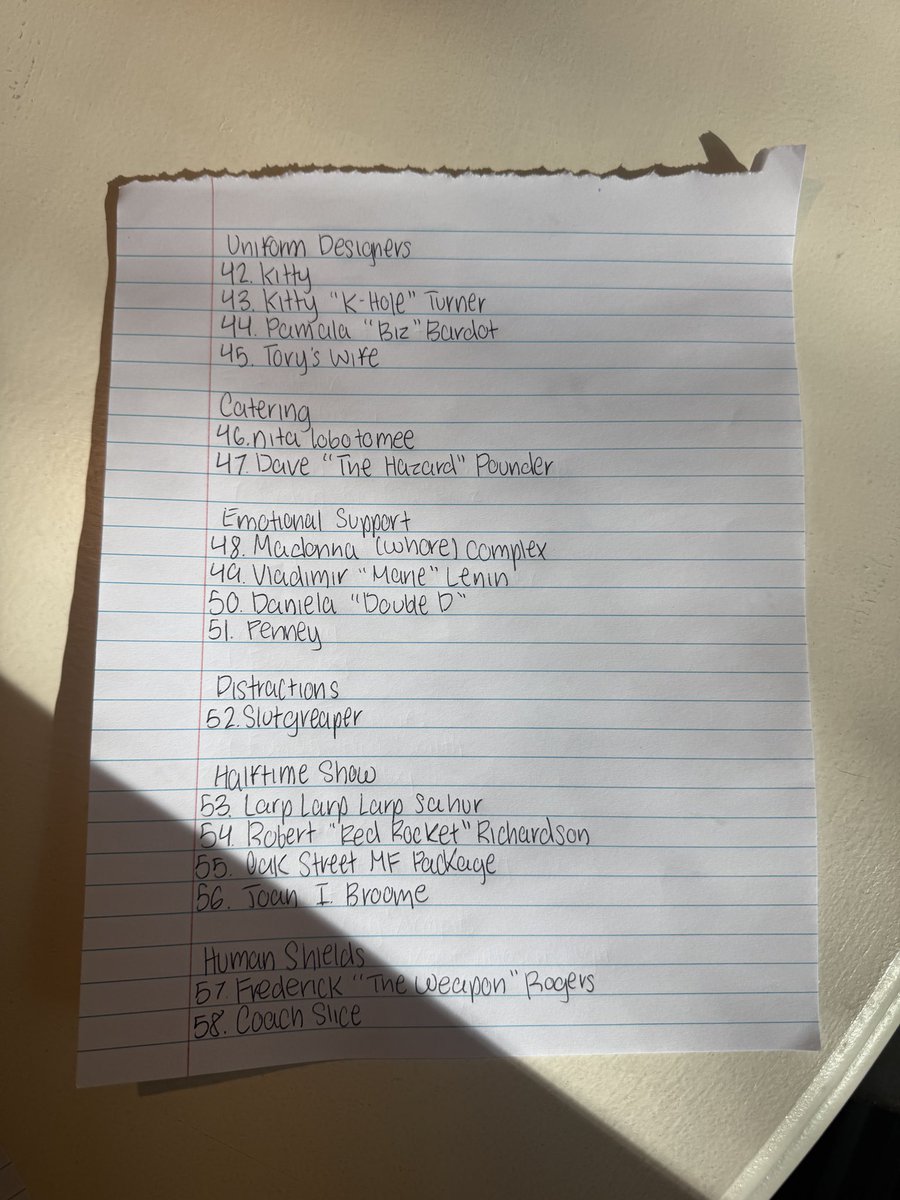 Uniform Designers
42. Kitty
43. Kitty "K-Hole" Turner
44. Pamala "Biz" Bardot
45. Tory's Wife
Catering
46. nita lobotomee
47. Dave "The Hazard" Pounder
Emotional Support
48. Madonna (whore) Complex
49. Vladimir "Marie" Lenin
50. Daniela "Double D"
51. Penney
Distractions
52. Slutgreaper
Halftime Show
53. Larp Larp Larp Sahur
54. Robert "Red Rocket" Richardson
55. Oak Street MF Package
56. Joan I. Broome
Human Shields
57. Frederick "The Weapon" Rogers
58. Coach Slice